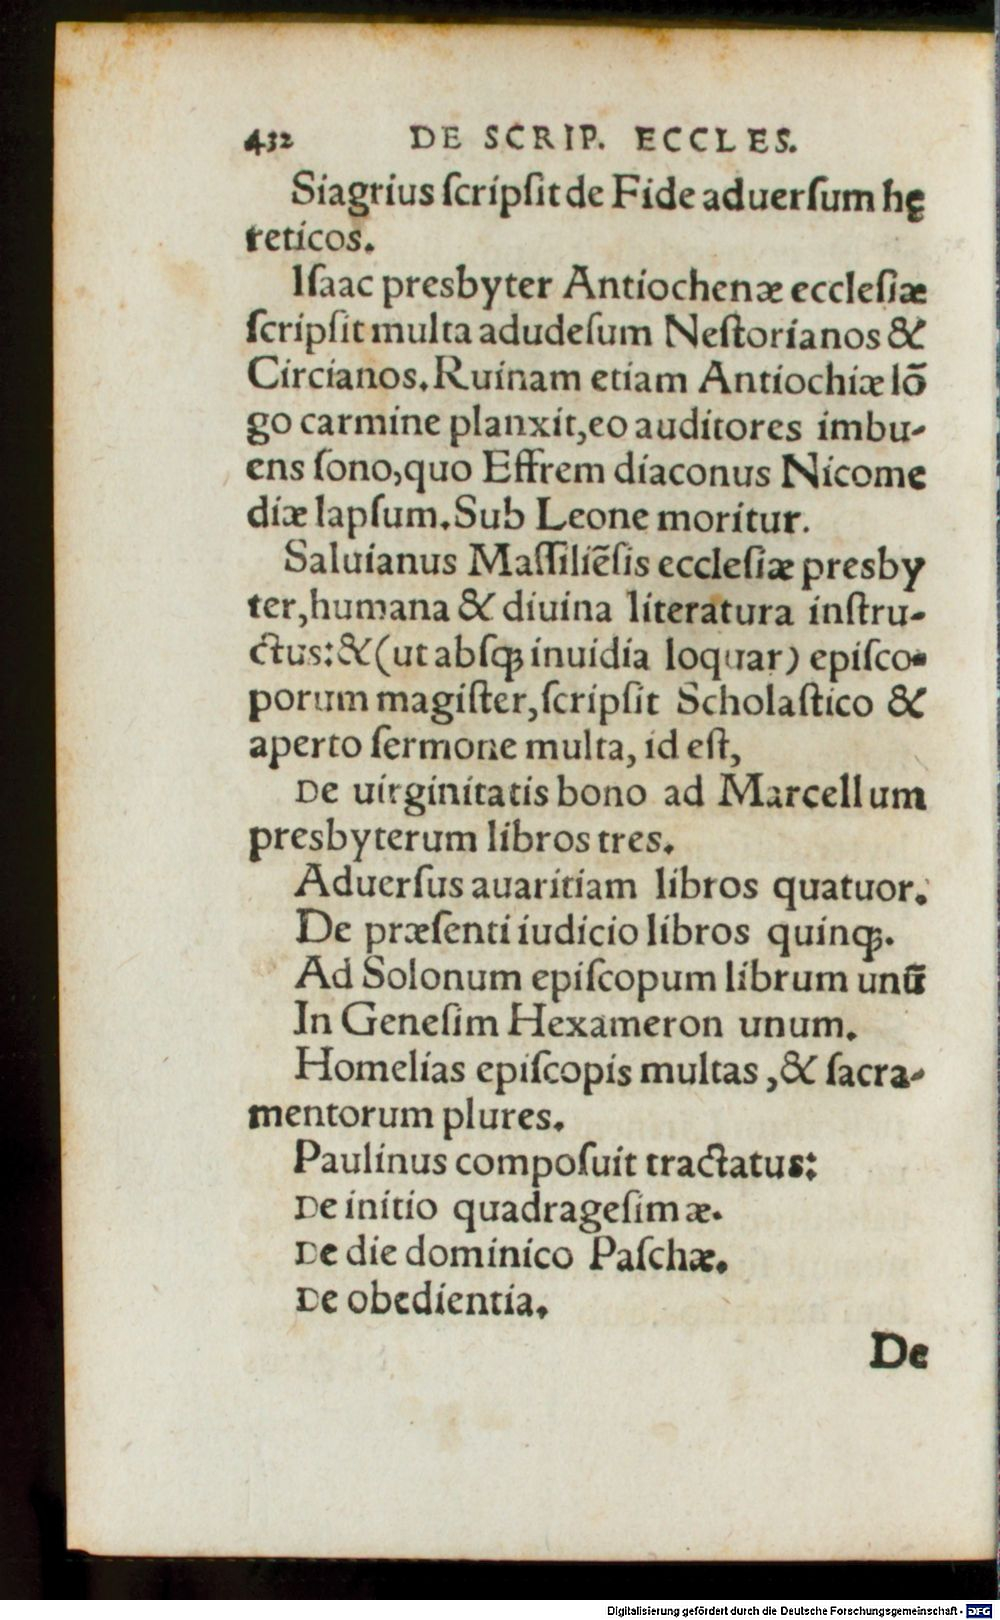 432 DE SCRIP. ECCLES.
Siagrius ſcripſit de Fide aduerſum hę
reticos.
Iſaac presbyter Antiochenæ eccleſiæ
ſcripſit multa adudeſum Neſtorianos &
Circianos. Ruinam etiam Antiochiæ lō
go carmine planxit, eo auditores imbu-
ens ſono, quo Effrem diaconus Nicome
diæ lapſum. Sub Leone moritur.
Saluianus Maſſiliēſis eccleſiæ presby
ter, humana & diuina literatura inſtru-
ctus: & (ut abſq; inuidia loquar) epiſco-
porum magiſter, ſcripſit Scholaſtico &
aperto ſermone multa, id eſt,
De uirginitatis bono ad Marcellum
presbyterum libros tres.
Aduerſus auaritiam libros quatuor.
De præſenti iudicio libros quinq;.
Ad Solonum epiſcopum librum unū
In Geneſim Hexameron unum.
Homelias epiſcopis multas, & ſacra-
mentorum plures.
Paulinus compoſuit tractatus:
De initio quadrageſimæ.
De die dominico Paſchæ.
De obedientia.
De
Digitalisierung gefördert durch die Deutsche Forschungsgemeinschaft - DFG